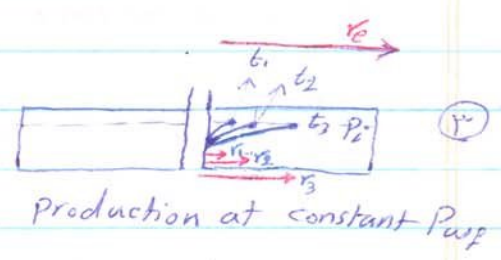 re
t1 t2
t3 Pi
۳
r1 r2
r3
Production at constant Pwf